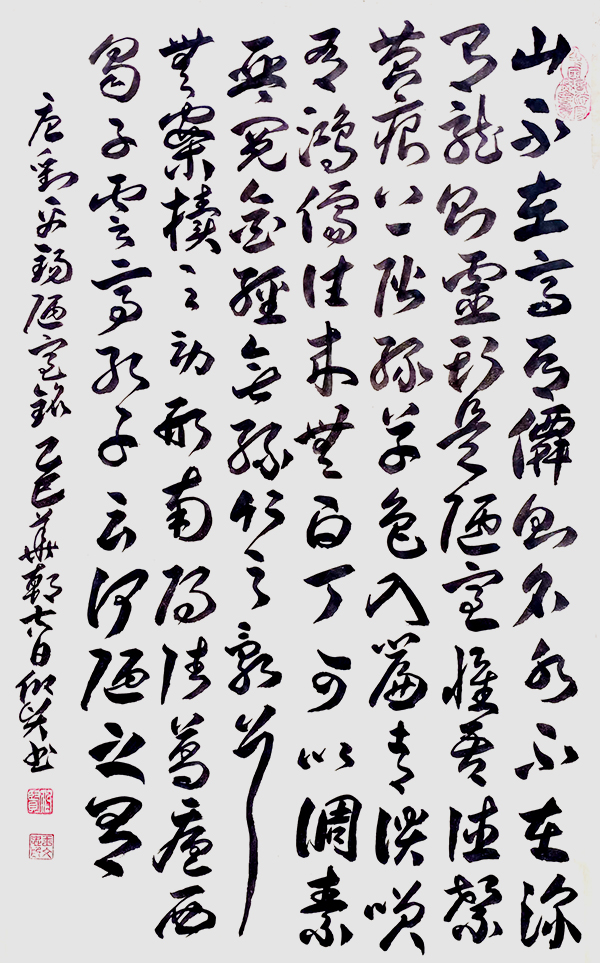 山不在高有僊則名水不在深
有龍則靈斯是陋室惟吾德馨
苔痕上階綠草色入簾青談笑
有鴻儒往來無白丁可以調素
琴閱金經無絲竹之亂耳
無案牘之勞形南陽諸葛廬西
蜀子雲亭孔子云何陋之有
唐劉禹錫陋室銘乙巳華朝六日書